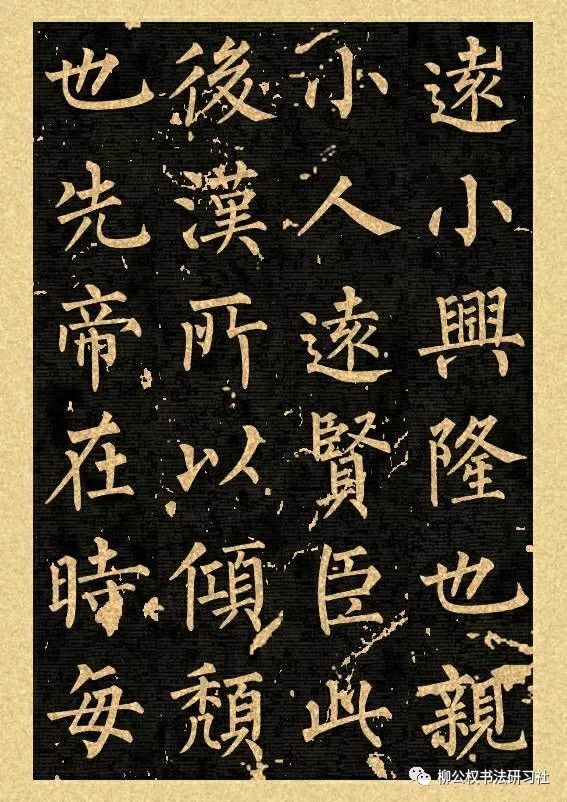 遠小興隆也親
小人遠賢臣此
後漢所以傾頹
也先帝在時每
柳公权书法研习社